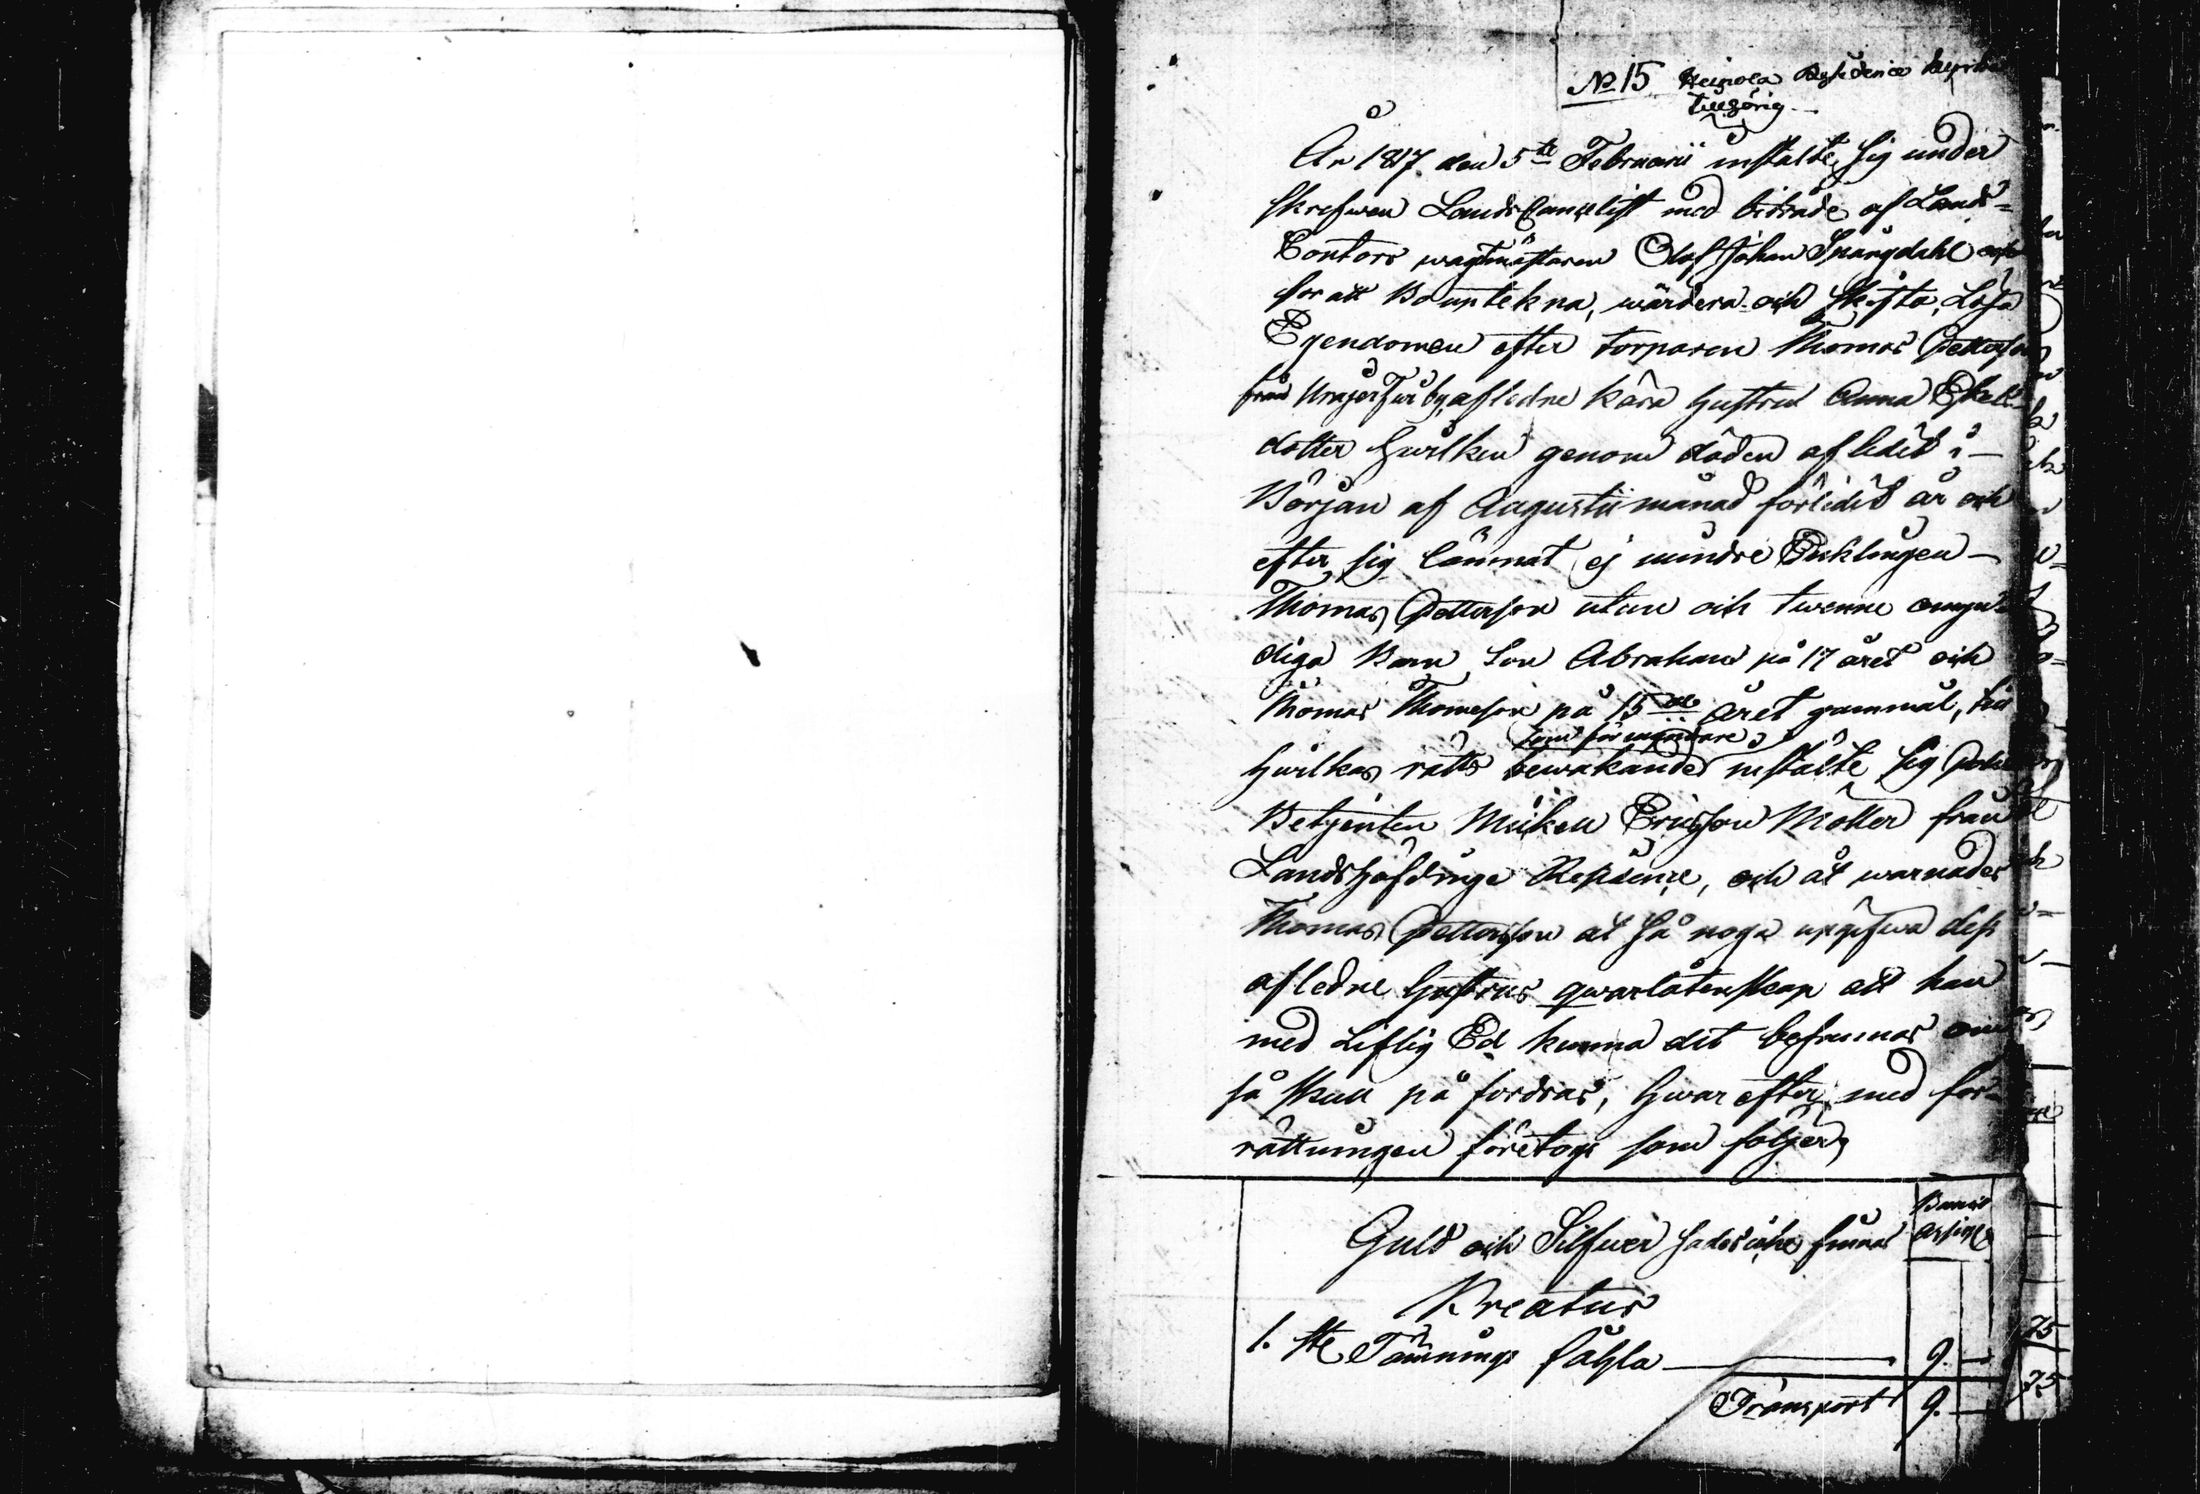 No 15 Heinola Residence
Tillhörig
År 1817 den 5te Februarii instälte sig under
skrefwen Lands Cancelist med biträde af Lands-
Contors wagtmästaren Olof Johan Snängdahl
for att Bouptekna, wärdera och skifta, Lösa
Egendomen efter torparen Thomas Petterson
från by, afledne kära hustru Anna Eskels
dotter hwilken genom döden afledit i
Början af Augustii månad förledit år och
efter sig lämnat ej mindre Encklingen
Thomas Petterson utan och twenne omyn-
diga Barn Son Abraham på 17 året och
Thomas Thomeson på 15de året gammal, till
som förmyndare
hwilkas rätts bewakande instälte sig Police
Betjenten Mickell Ericsson Möller från
Landshöfdinge Residence, och åt warnades
Thomas Petterson at så noga uppgifwa dess
afledne hustrus qwarlåtenskap att han
med Liflig Ed kunna det befinnas om
så skull på fordras, hwarefter med för-
rättningen företogs som följer,
Banco
Assign
Guld och Silfwer sades icke finnas
Kreatur
1. St Tämnings fåhla 9. —
Transport 9. —
75
75